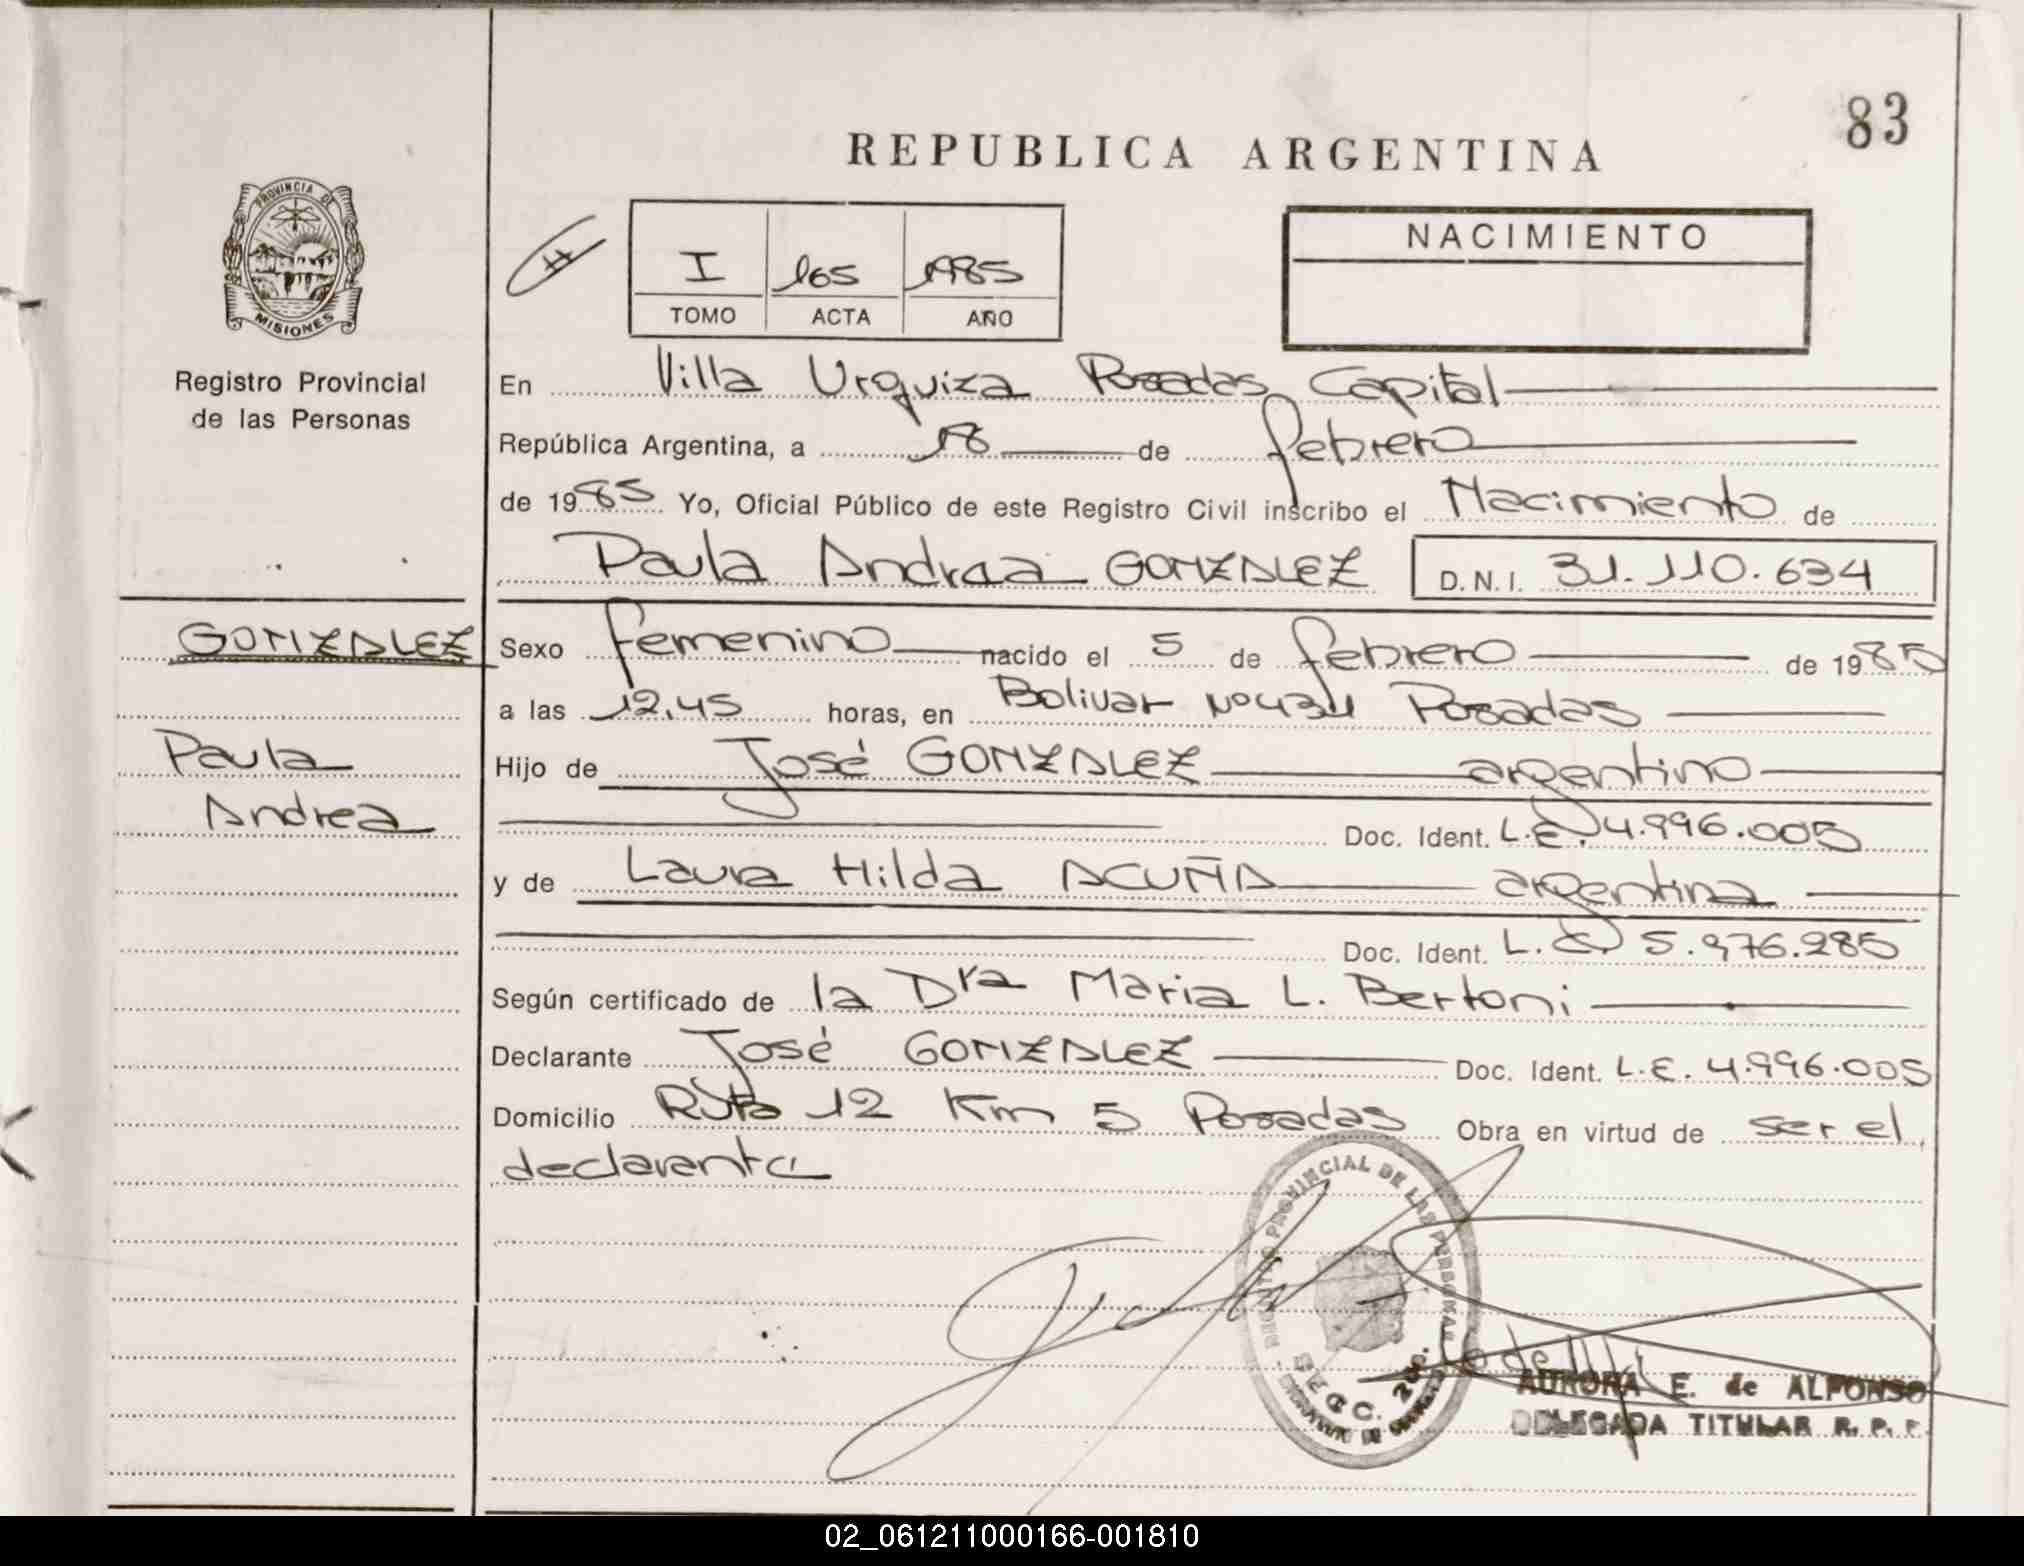 83
REPUBLICA ARGENTINA
PROVINCIA DE
MISIONES
Registro Provincial
de las Personas
I 165 1985
TOMO ACTA AÑO
NACIMIENTO
En Villa Urquiza Posadas Capital
República Argentina, a 18 de febrero
de 1985 Yo, Oficial Público de este Registro Civil inscribo el Nacimiento de
Paula Andrea GONZALEZ D.N.I. 31.110.634
GONZALEZ
Paula
Andrea
Sexo femenino nacido el 5 de febrero de 1985
a las 12,45 horas, en Bolivar Nº 434 Posadas
Hijo de José GONZALEZ argentino
Doc. Ident. L.E. 4.996.005
y de Laura Hilda ACUÑA argentina
Doc. Ident. L.C. 5.976.285
Según certificado de la Dra Maria L. Bertoni
Declarante José GONZALEZ Doc. Ident. L.E. 4.996.005
Domicilio Ruta 12 Km 5 Posadas Obra en virtud de ser el
declarante
PROVINCIAL DE LAS PERSONAS
SECC.
AURORA E. de ALFONSO
DELEGADA TITULAR R. P. P.
02_061211000166-001810